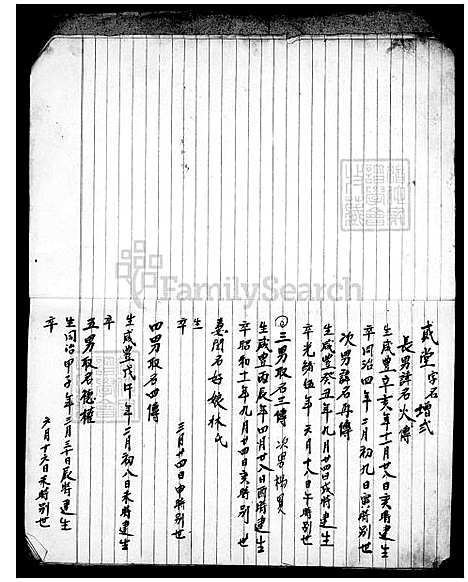 貳堂字名增式
長男諱名火傳
生咸豐辛亥年十一月廿八日亥時建生
卒同治四年二月初九日寅時別世
次男諱名再傳
生咸豐癸丑年九月廿四日戌時建生
卒光緒伍年六月十八日午時別世
三男取名三傳 次男楊買
生咸豐丙辰年四月廿八日酉時建生
卒昭和十一年九月廿四日亥時別世
妻閏名好娘林氏
生
卒 三月廿四日申時別世
四男取名四傳
生咸豐戊午年二月初八日未時建生
卒
五男取名德權
生同治甲子年三月三十日辰時建生
卒 六月十六日未時別世
FamilySearch